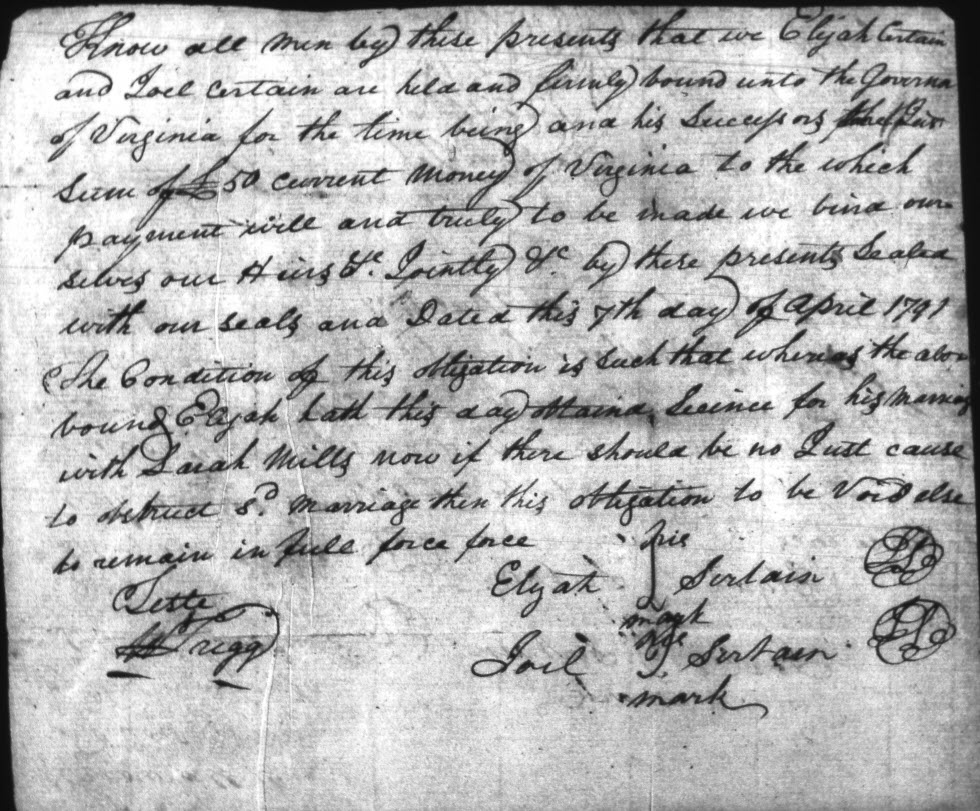 Know all men by these presents that we Elijah Certain
and Joel Certain are held and firmly bound unto the Governor
of Virginia for the time being and his Successors the Just
Sum of £50 current Money of Virginia to the which
payment will and truly to be made we bind our
selves our Heirs &c. Jointly &c by these presents Sealed
with our seals and Dated this 7th day of April 1791
The Condition of this obligation is such that whereas the above
bound Elijah hath this day obtaind Licince for his Marriag
with Sarah Mills now if there should be no Just cause
to obstruct sd. Marriage then this obligation to be Void else
to remain in full force force
his
Elijah Sertain
mark
Teste
his
Joel Sertain
mark